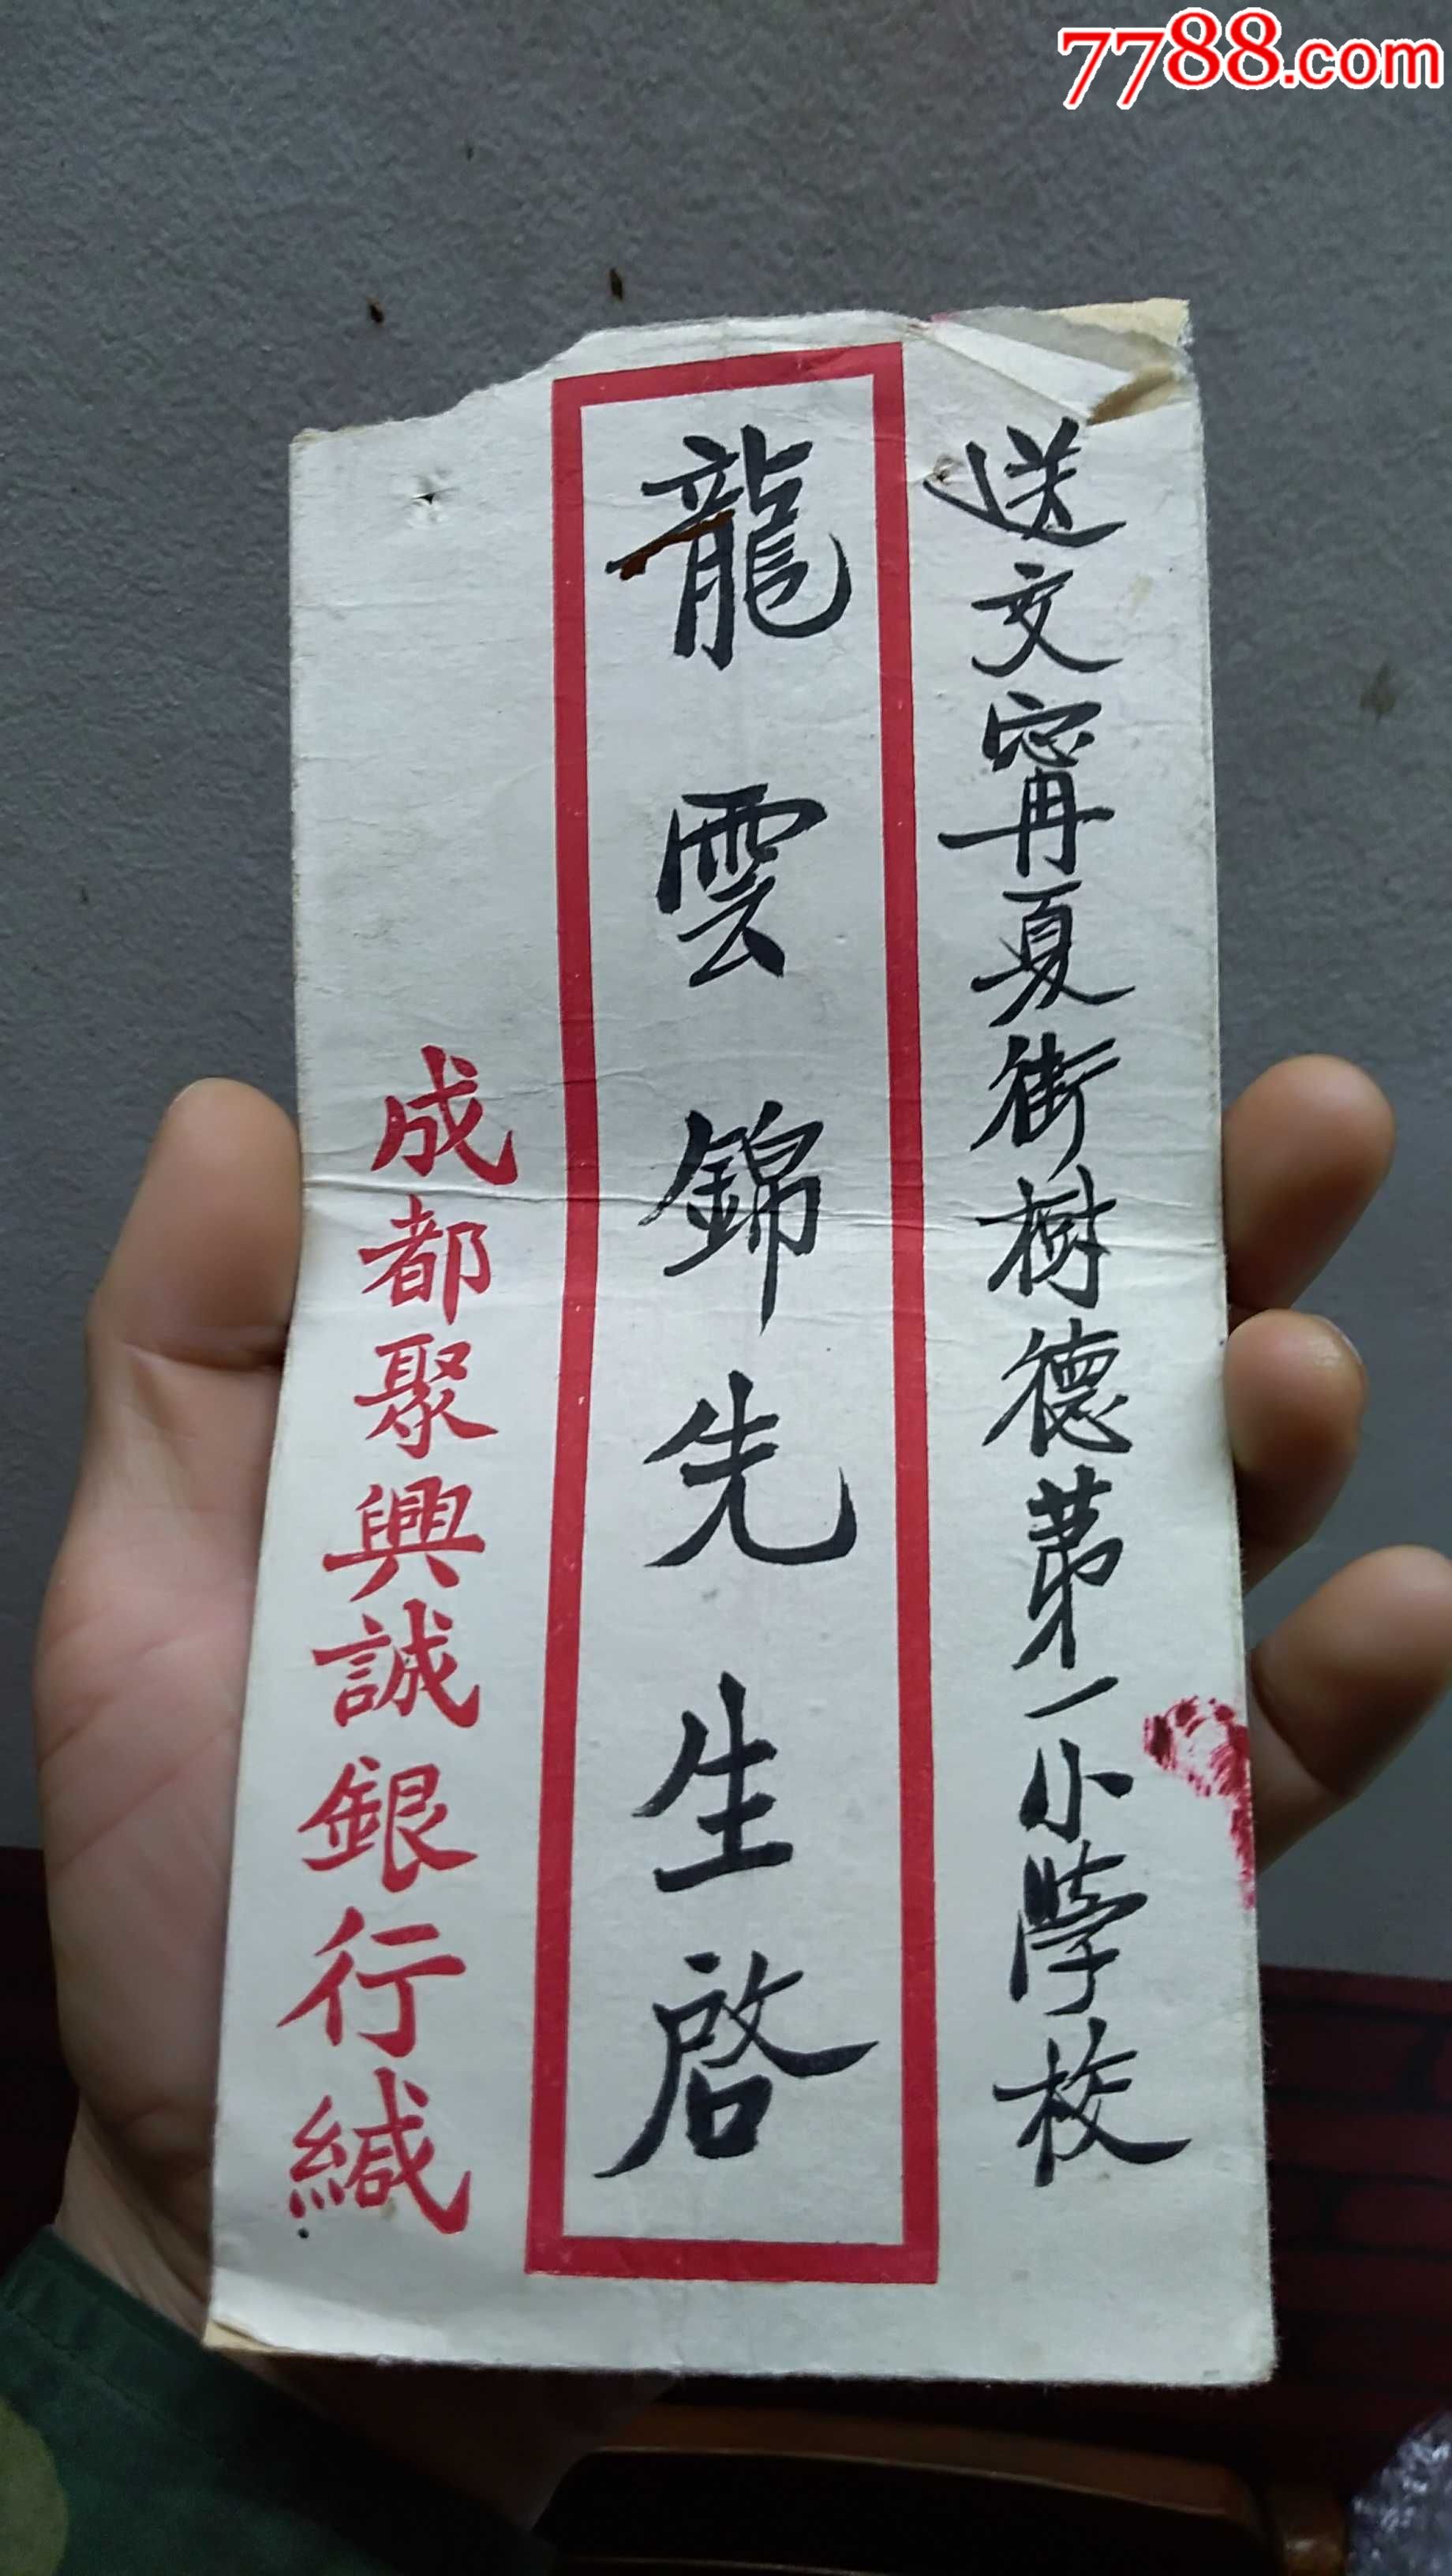 7788.com
送交甯夏街樹德第一小學校
龍雲錦先生啓
成都聚興誠銀行緘